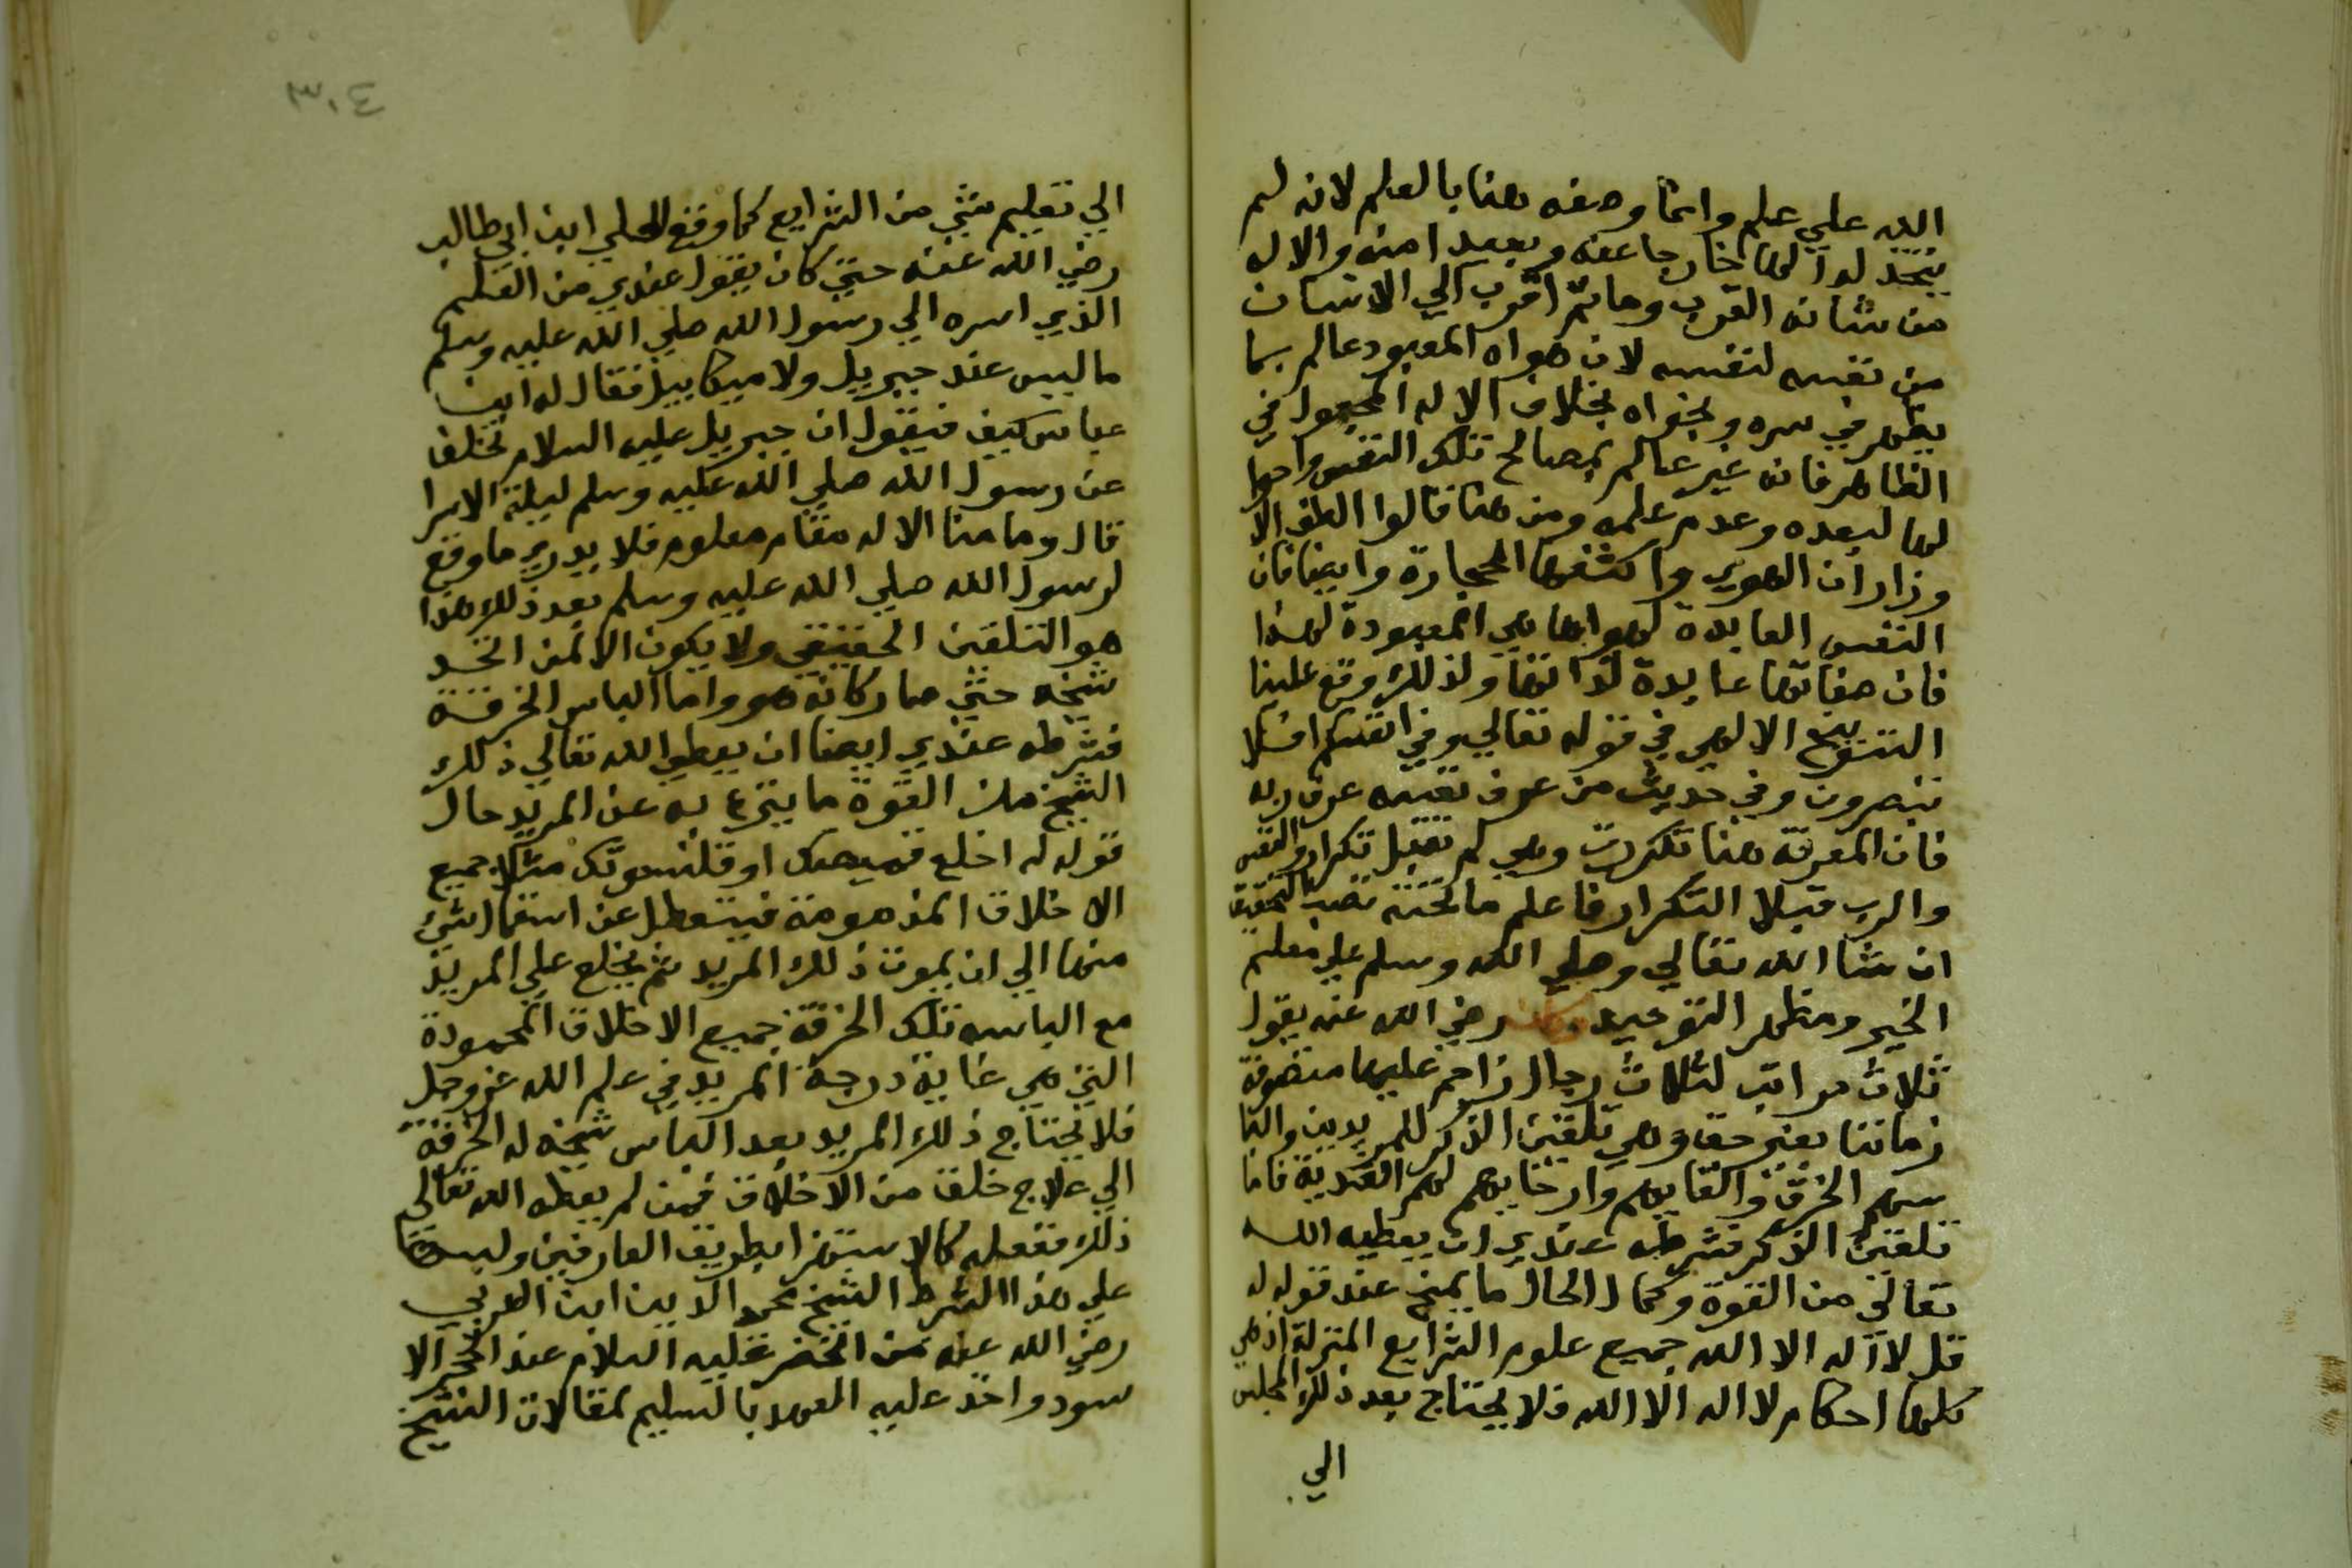 الله علي علم وانما وصفه هنا بالعلم لانه لم
يتخذ لها خارجا عنه وبعيدا منه والاله
من شانه القرب وما ثم اقرب الي الانسان
من نفسه لنفسه لان هواه المعبود عالم بما
يظهر في سره ونجواه بخلاف الاله المجعول في
الظاهر فانه غير عالم بمصالح تلك النفس واحوا
لها لبعده وعدم علمه ومن هنا قالوا الطف الا
وزار ان الهوي واكثفها الحجارة وايضا فان
النفس العابدة لهواها هي المعبودة لهذا
فان صفاتها عابدة لذاتها ولذلك وقع علينا
التنبيه الالهي في قوله تعالي وفي انفسكم افلا
تبصرون وفي حديث من عرف نفسه عرف ربه
فان المعرفة هنا تكررت وهي لم تقبل تكرار والنفس
والرب قبلا التكرار فاعلم ما تحته تصب التحقيق
ان شا الله تعالي وصلي الله وسلم علي معلم
الخير ومظهر التوحيد. وكان رضي الله عنه يقول
ثلاث مراتب لثلاث رجال زاحم عليها متصوفة
زماننا بغير حق وهي تلقين الذكر للمريدين والبا
سهم الخرق والقابهم وارخايهم لهم العذبة فاما
تلقين الذكر فشرطه عندي ان يعطيه الله
تعالي من القوة وكمال الحال ما يمنح عند قوله له
قل لا اله الا الله جميع علوم الشرايع المنزلة اذ هي
كلها احكام لا اله الا الله فلا يحتاج بعد ذلك المجلس
الي
٣٠٤
الي تعليم شي من الشرايع كما وقع لعلي ابن ابي طالب
رضي الله عنه حتي كان يقول عندي من العلم
الذي اسره الي رسول الله صلي الله عليه وسلم
ما ليس عند جبريل ولا ميكاييل فقال له ابن
عباس كيف فيقول ان جبريل عليه السلام تخلف
عن رسول الله صلي الله عليه وسلم ليلة الاسرا
قال وما منا الا له مقام معلوم فلا يدري ما وقع
لرسول الله صلي الله عليه وسلم بعد ذلك هذا
هو التلقين الحقيقي ولا يكون الا لمن اتحد
شيخه حتي صار كانه هو واما الباس الخرقة
فشرطه عندي ايضا ان يعطي الله تعالي ذلك
الشيخ من القوة ما ينزع به عن المريد حال
قوله له اخلع قميصك او قلنسوتك مثلا جميع
الاخلاق المذمومة فيتعطل عن استعمال شي
منها الي ان يموت ذلك المريد ثم يخلع علي المريد
مع الباسه تلك الخرقة جميع الاخلاق المحمودة
التي هي غاية درجة المريد في علم الله عز وجل
فلا يحتاج ذلك المريد بعد الباس شيخه له الخرقة
الي علاج خلق من الاخلاق فمن لم يعطه الله تعالي
ذلك ففعله كالاستهزا بطريق العارفين ولبسها
علي هذا الشرط الشيخ محي الدين ابن العربي
رضي الله عنه من الخضر عليه السلام عند الحجر الا
سود واخذ عليه العهد بالتسليم لمقالات الشيخ